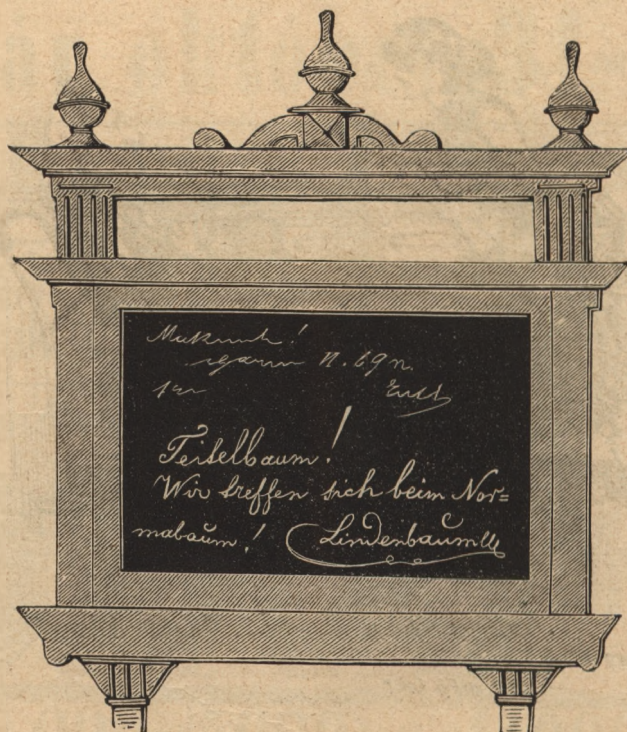 N. 69 n.
Teitelbaum!
Wir treffen sich beim Nor=
mabaum! Lindenbaum